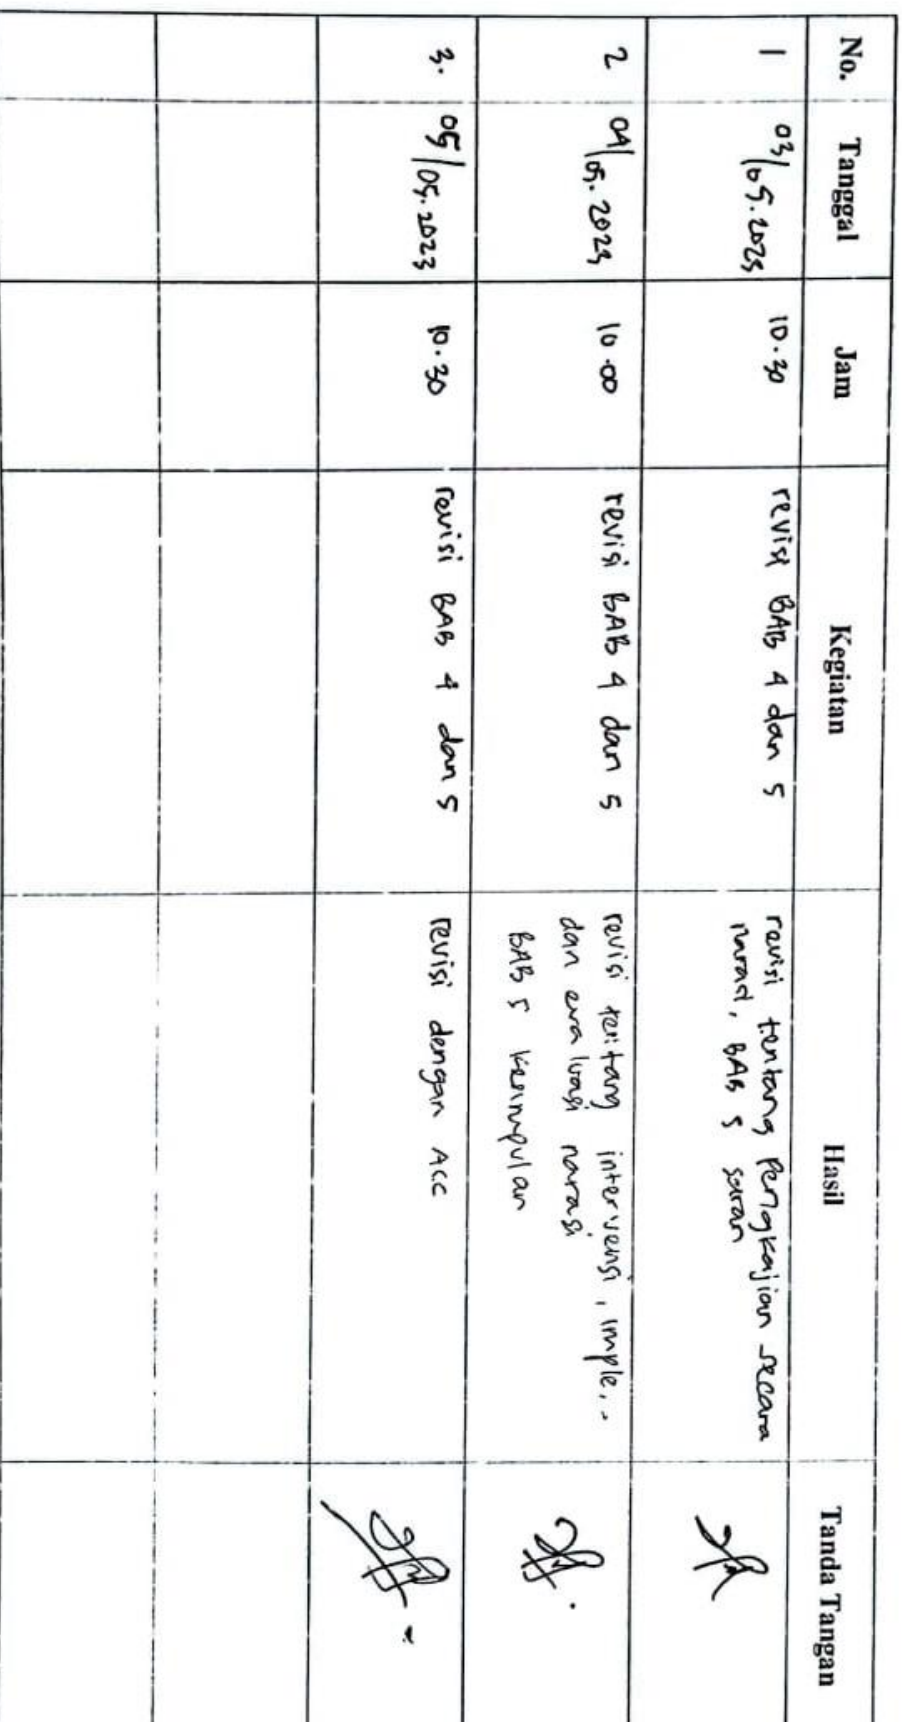 No. Tanggal Jam Kegiatan Hasil Tanda Tangan
1 03/05.2023 10.30 revisi BAB 4 dan 5 revisi tentang Pengkajian secara
narasi, BAB 5 saran
2 04/05.2023 10.00 revisi BAB 4 dan 5 revisi tentang intervensi, imple,-
dan evaluasi narasi
BAB 5 kesimpulan
3. 05/05.2023 10.30 revisi BAB 4 dan 5 revisi dengan ACC